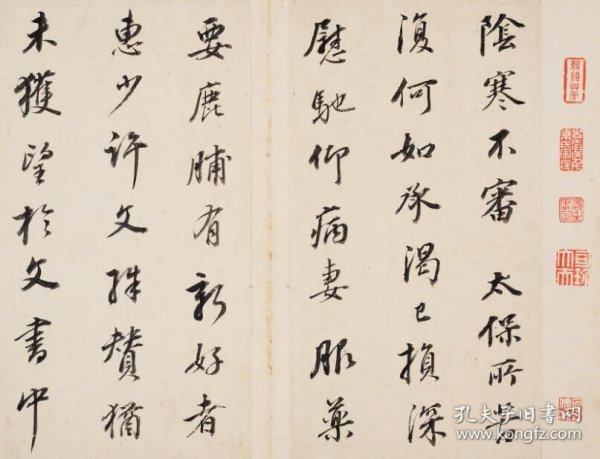 陰寒不審 太保所
復何如承渴已損深
慰馳仰病妻服藥
要鹿脯有新好者
惠少許文殊贊猶
未獲望於文書中
孔夫子旧书网
www.kongfz.com